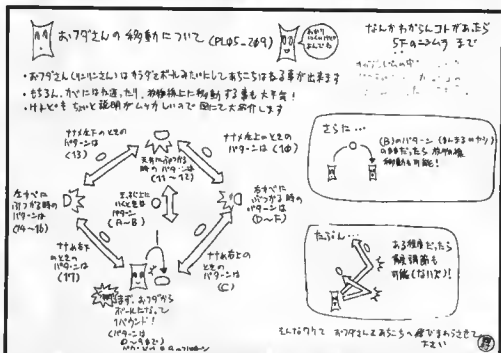 おフダさんの移動について (PL05-209)
なんかわからんコトがあったら
5Fのニシムラまで
・おフダさん(リンリンさん)はカラダをボールみたいにしてあちこちはねる事が出来ます
・もちろん、カベにはね返ったり、放物線上に移動する事も大平気!
・けれどもちょいと説明がムツかしいので図にて大紹介します
ナナメ左下のときの
パターンは
(13)
天井にぶつかる
時の
パターンは
ナナメ左上のときの
パターンは
(10)
左カベに
ぶつかる時の
パターンは
(14~16)
まっすぐ上に
いくときは
パターン
(A~B)
右カベに
ぶつかる時の
パターンは
(D~F)
ナナメ右下
のときの
パターンは
(17)
ナナメ右上の
ときの
パターンは
(C)
まず、おフダから
ボールになって
1バウンド!
(パターンは
0~9まで)
さらに…
(B)のパターン
のままだったら放物線
移動も可能!
たぶん…
ある程度だったら
角度調節も
可能(ないか)!
そんなワケで おフダさんをあちこちへ飛びまわらせて
下さい